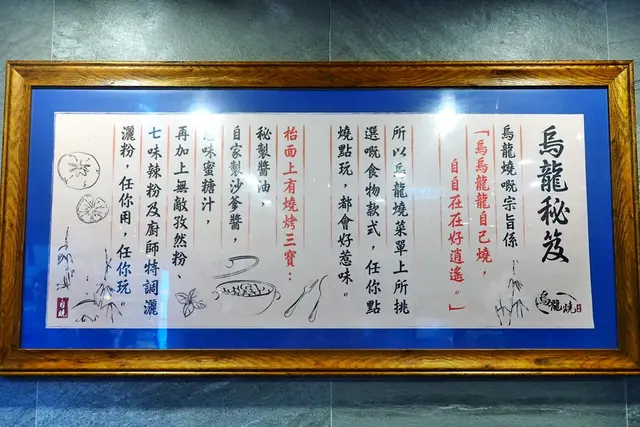 烏龍秘笈
烏龍燒嘅宗旨係
「烏烏龍龍自己燒，
自自在在好逍遙。」
所以烏龍燒菜單上所挑
選嘅食物款式，任你點
燒點玩，都會好惹味。
枱面上有燒烤三寶：
秘製醬油，
自家製沙爹醬，
味蜜糖汁，
再加上無敵孜然粉、
七味辣粉及廚師特調灑
灑粉，任你用，任你玩。
烏龍燒